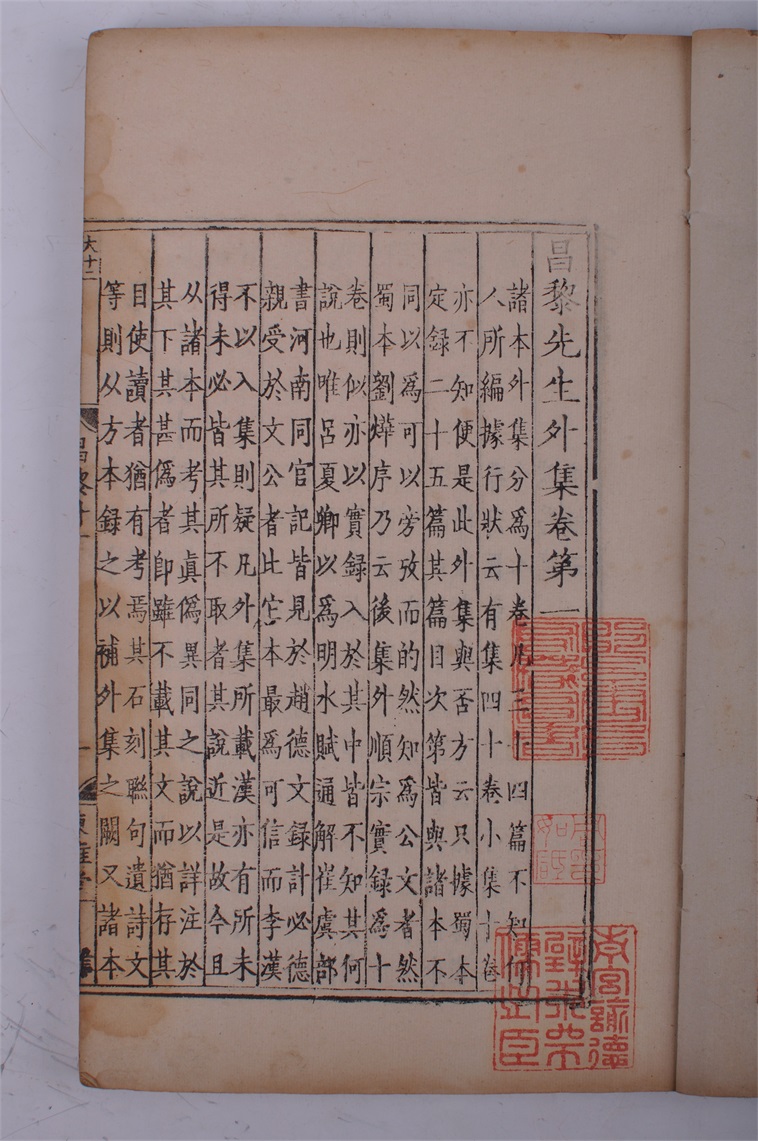 昌黎先生外集卷第一
諸本外集分爲十卷凡三十四篇不知何
人所編據行狀云有集四十卷小集十卷
亦不知便是此外集與否方云只據蜀本
定録二十五篇其篇目次第皆與諸本不
同以爲可以旁攷而的然知爲公文者然
蜀本劉燁序乃云後集外順宗實録爲十
卷則似亦以實録入於其中皆不知其何
說也唯呂夏卿以爲明水賦通解崔虞部
書河南同官記皆見於趙德文録計必德
親受於文公者比它本最爲可信而李漢
不以入集則疑凡外集所載漢亦有所未
得未必皆其所不取者其說近是故今且
从諸本而考其眞僞異同之說以詳注於
其下其甚僞者卽雖不載其文而猶存其
目使讀者猶有考焉其石刻聯句遺詩文
等則从方本録之以補外集之闕又諸本
大十二
昌黎外一
一
東雅堂
南宮諭德